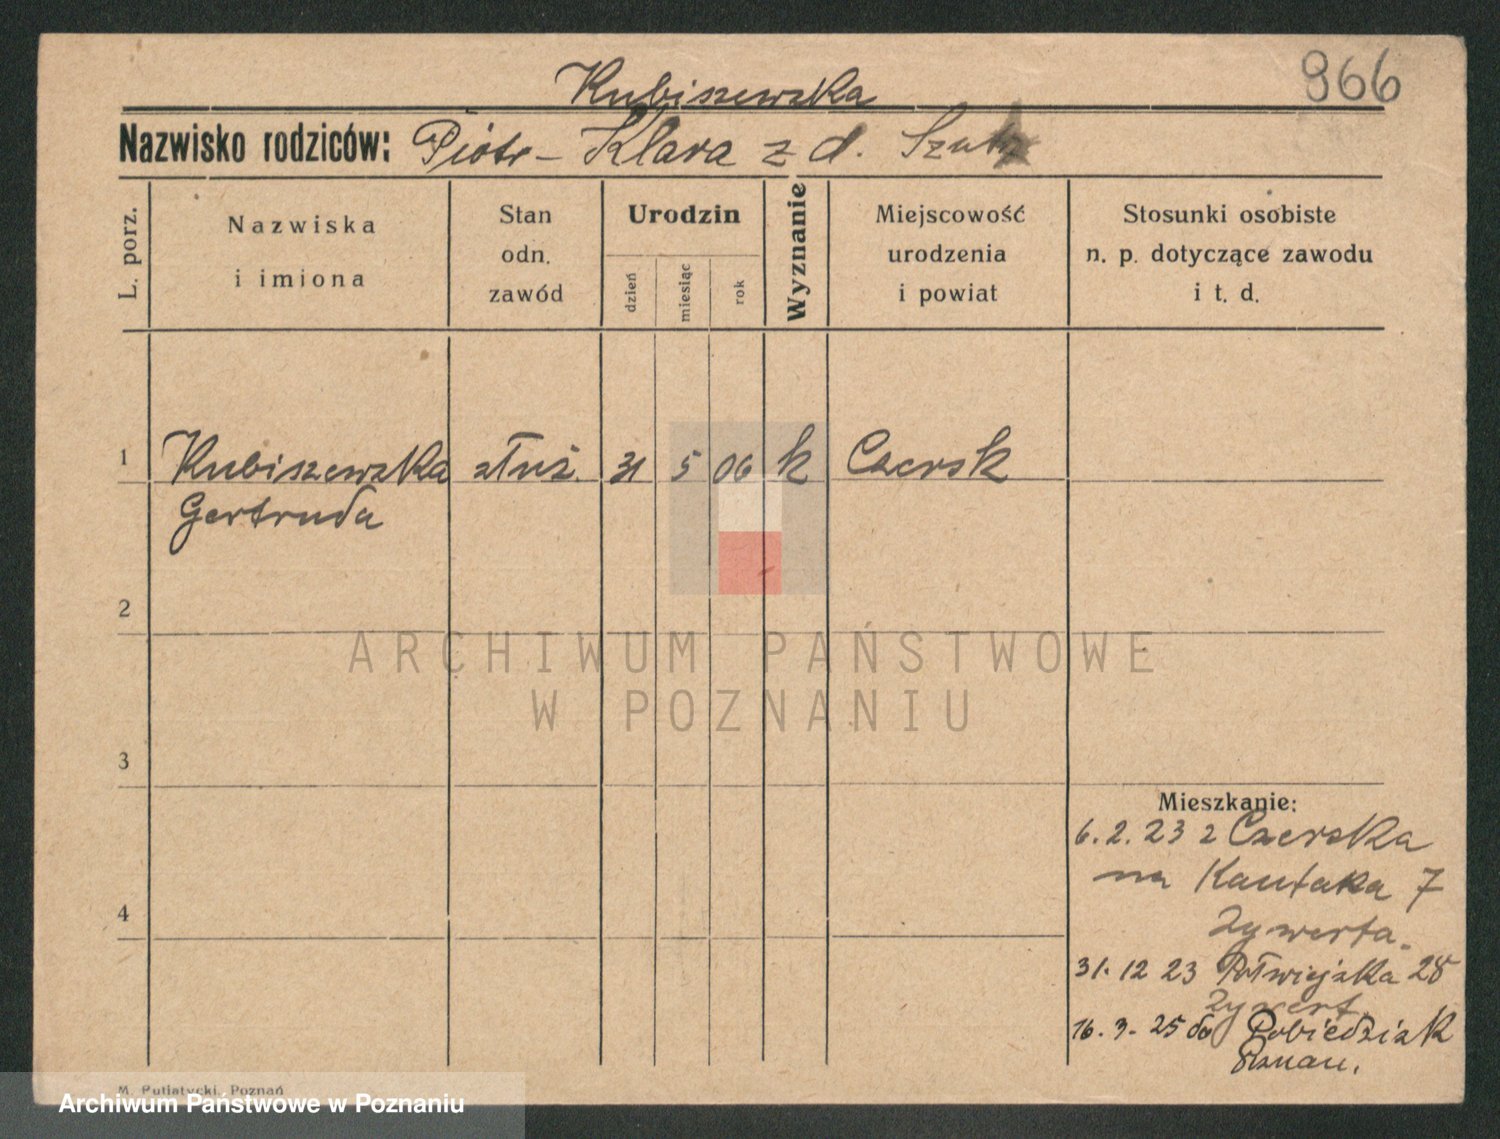 966
Kubiszewska
Nazwisko rodziców: Piotr - Klara z d.
L. porz.
Nazwiska
i imiona
Stan
odn.
zawód
Urodzin
dzień
miesiąc
rok
Wyznanie
Miejscowość
urodzenia
i powiat
Stosunki osobiste
n. p. dotyczące zawodu
i t. d.
1 Kubiszewska służ. 31 5 06 k Czersk
Gertruda
2
ARCHIWUM PAŃSTWOWE
W POZNANIU
3
Mieszkanie:
6. 2. 23 z Czerska
na Kantaka 7
Zywerta.
4
31. 12 23 Półwiejska 28
Zywert
16. 3. 25 do Pobiedzisk
M. Putiatycki, Poznań
Archiwum Państwowe w Poznaniu